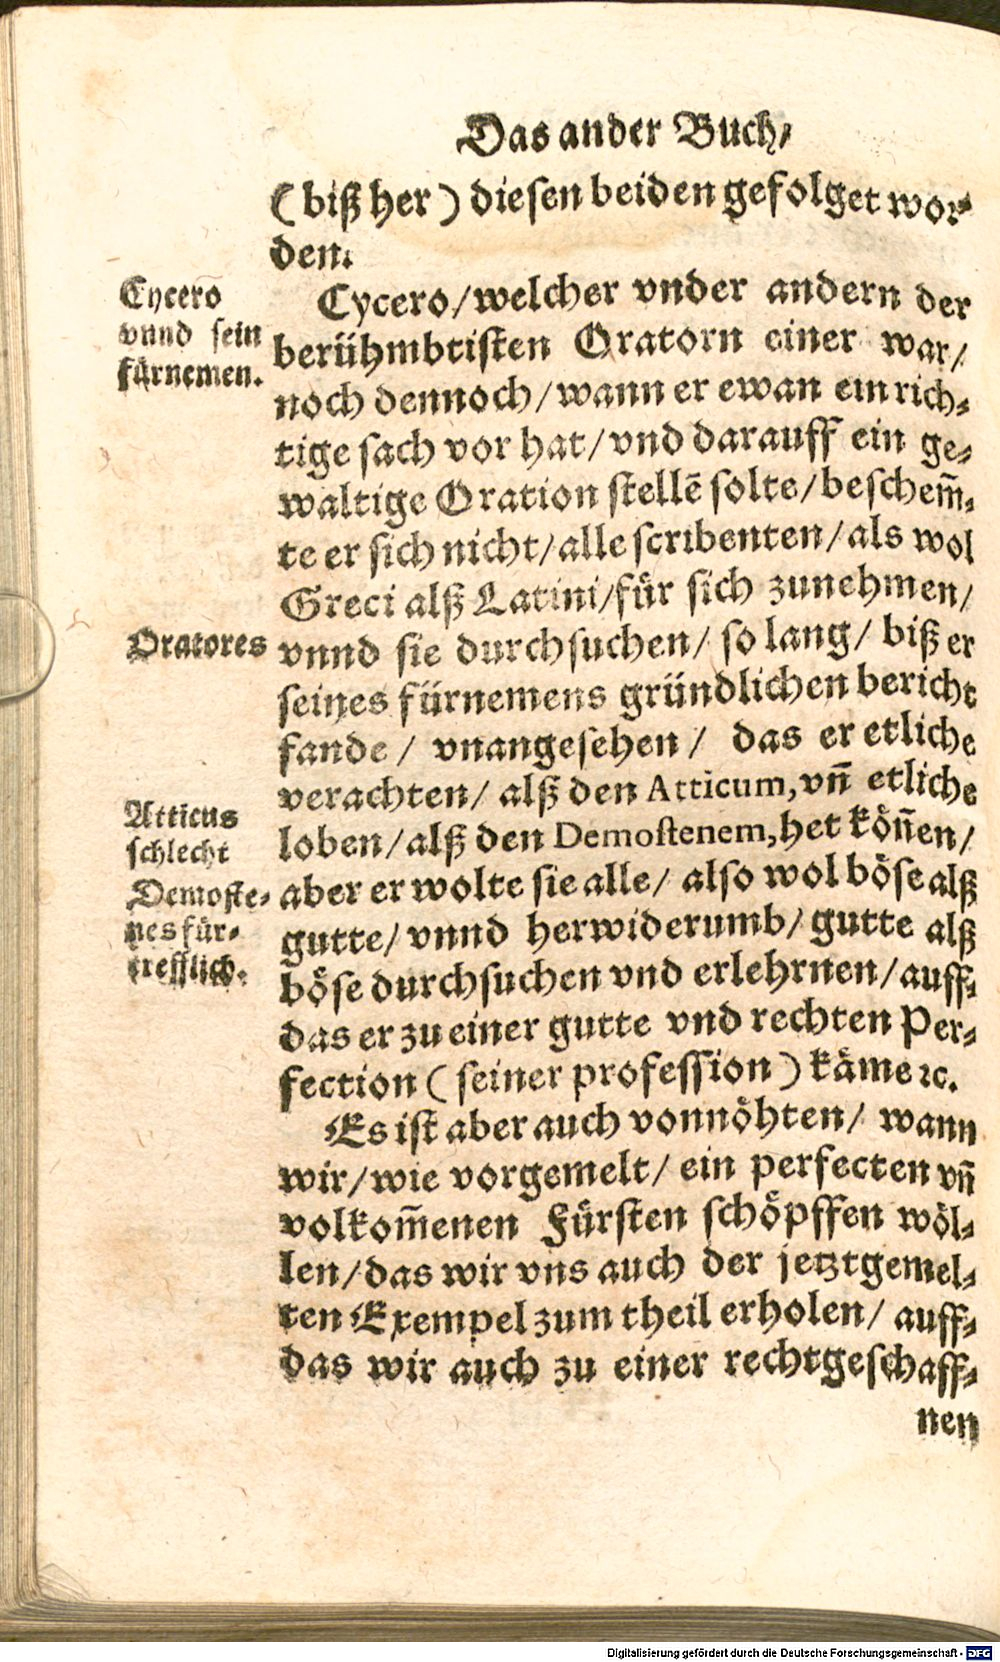 Das ander Buch/
(biß her) diesen beiden gefolget wor-
den.
Cycero
vnnd sein
fürnemen.
Cycero/welcher vnder andern der
berühmbtisten Oratorn einer war/
noch dennoch/wann er ewan ein rich-
tige sach vor hat/vnd darauff ein ge-
waltige Oration stellẽ solte/beschem̃-
te er sich nicht/alle scribenten/als wol
Greci alß Latini/für sich zunehmen/
Oratores
vnnd sie durchsuchen/ so lang/ biß er
seines fürnemens gründlichen bericht
fande/ vnangesehen/ das er etliche
verachten/ alß den Atticum, vñ etliche
Atticus
schlecht
Demoste-
nes für-
trefflich.
loben/alß den Demostenem, het köñen/
aber er wolte sie alle/ also wol böse alß
gutte/ vnnd herwiderumb/ gutte alß
böse durchsuchen vnd erlehrnen/auff-
das er zu einer gutte vnd rechten Per-
fection (seiner profession) käme ꝛc.
Es ist aber auch vonnöhten/ wann
wir/wie vorgemelt/ ein perfecten vñ
volkom̃enen Fürsten schöpffen wöl-
len/das wir vns auch der jetztgemel-
ten Exempel zum theil erholen/ auff-
das wir auch zu einer rechtgeschaff-
nen
Digitalisierung gefördert durch die Deutsche Forschungsgemeinschaft - DFG